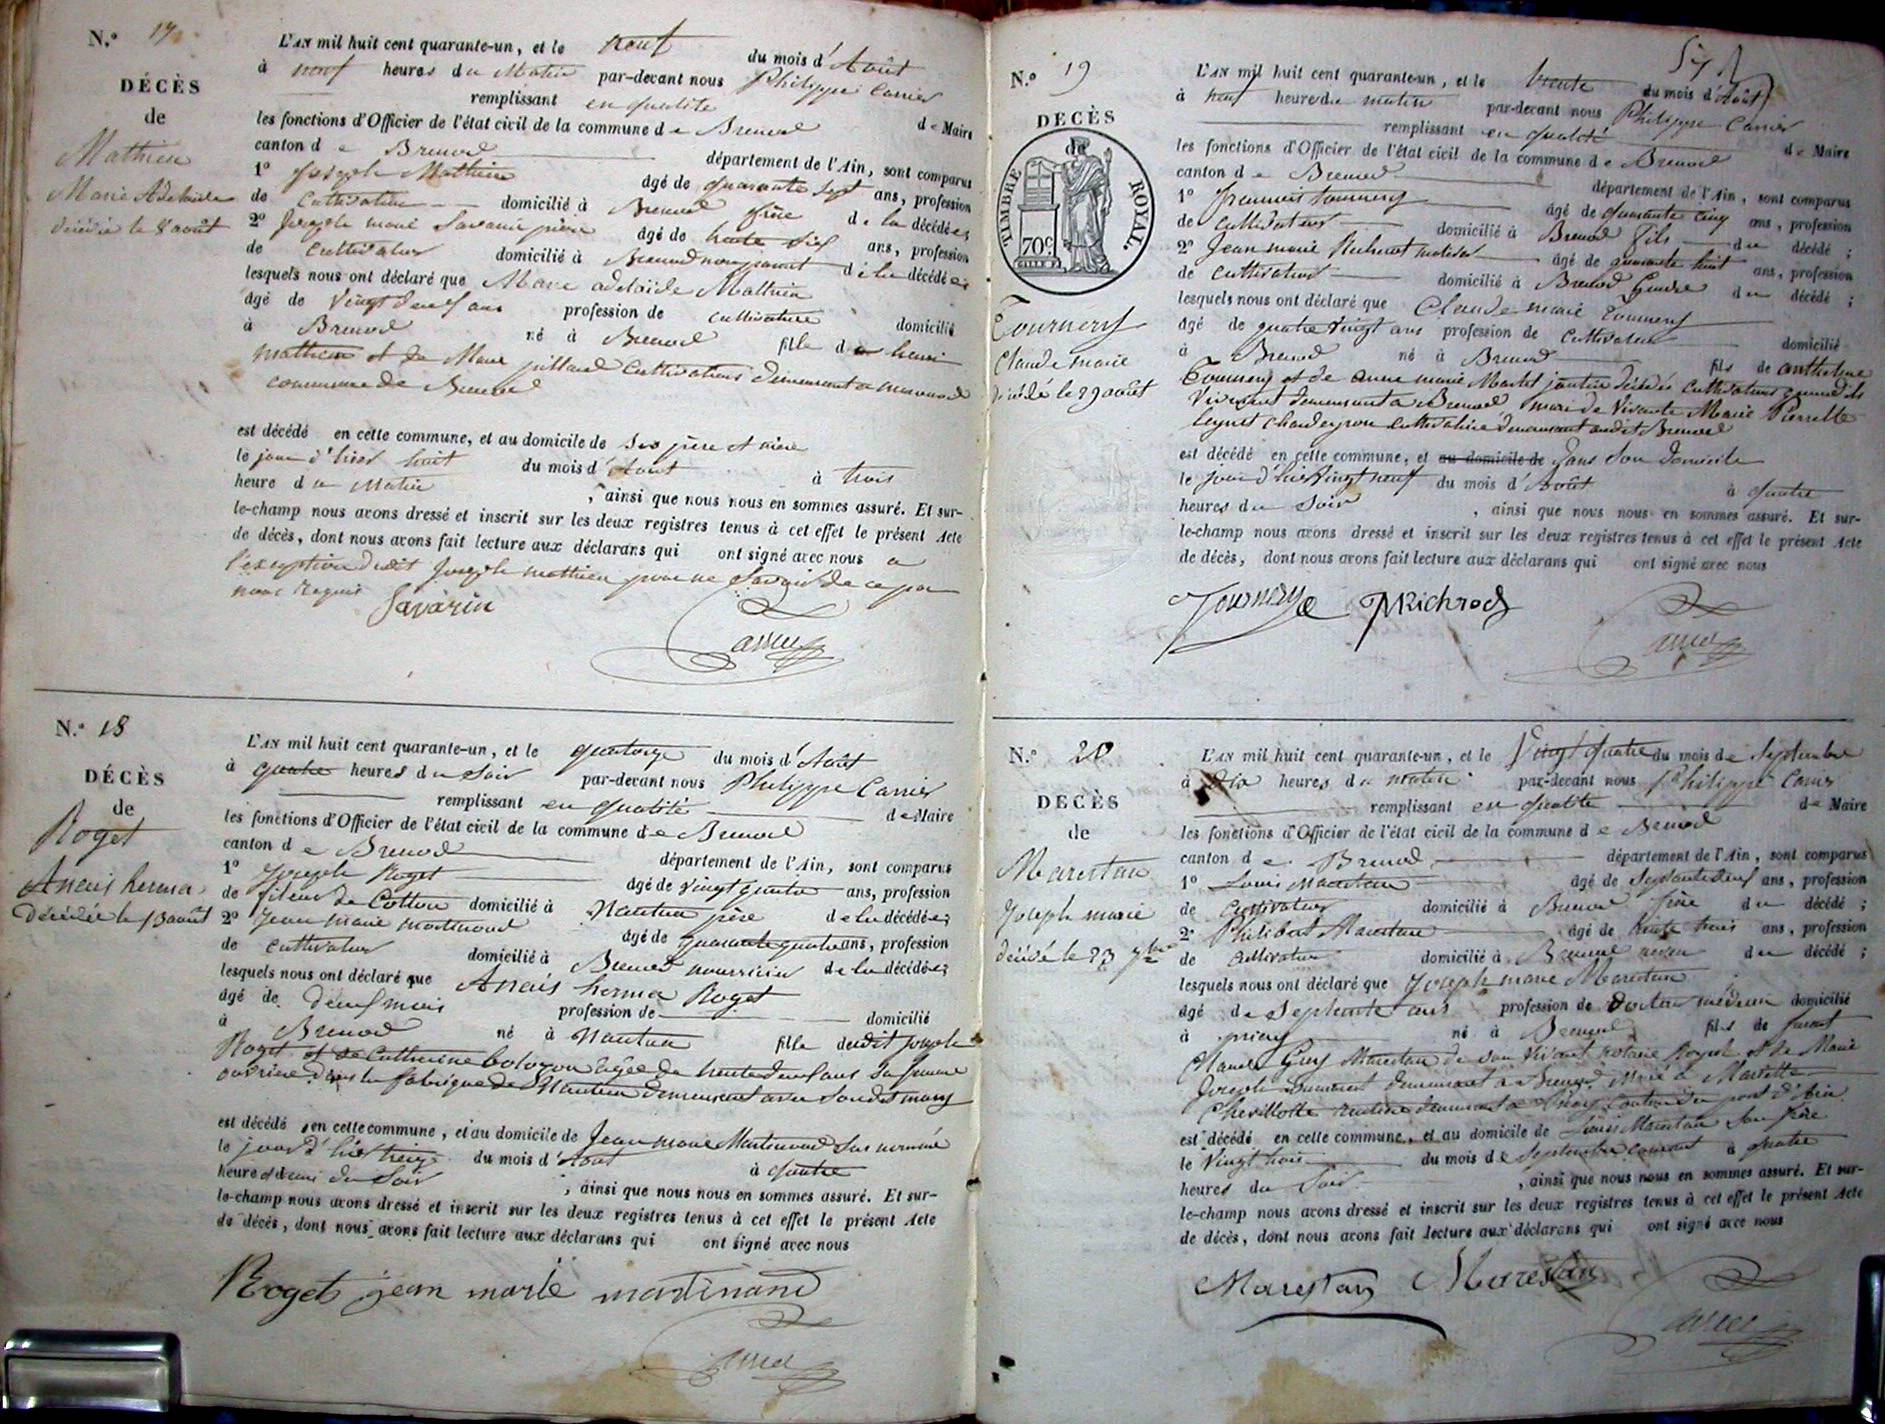 N.º 17
DÉCÈS
de
Mathieu
Marie Adelaïde
décédée le 8 août
L'AN mil huit cent quarante-un, et le neuf du mois d'Août
à neuf heures du Matin par-devant nous Philippe Carrier
remplissant en qualité de Maire
les fonctions d'Officier de l'état civil de la commune de Brenod
canton de Brenod département de l'Ain, sont comparus
1º Joseph Mathieu âgé de quarante sept ans, profession
de Cultivateur domicilié à Brenod frère de la décédée;
2º Joseph marie Savarin âgé de trente six ans, profession
de Cultivateur domicilié à Brenod non parent de la décédée;
lesquels nous ont déclaré que Marie adelaïde Mathieu
âgé de Vingt deux ans profession de cultivatrice domicilié
à Brenod né à Brenod fille de henri
mathieu et de Marie Cultivateurs demeurant a
commune de Brenod
est décédé en cette commune, et au domicile de ses père et mère
le jour d'hier huit du mois d'Aout à trois
heure du Matin, ainsi que nous nous en sommes assuré. Et sur-
le-champ nous avons dressé et inscrit sur les deux registres tenus à cet effet le présent Acte
de décès, dont nous avons fait lecture aux déclarans qui ont signé avec nous a
l'exception dudit Joseph mathieu pour ne Savoir de ce par
nous Requis Savarin
Carrier
N.º 18
DÉCÈS
de
Roget
Anaïs herma
Décédée le 13 août
L'AN mil huit cent quarante-un, et le quatorze du mois d'Août
à quatre heures du Soir par-devant nous Philippe Carrier
remplissant en qualité de Maire
les fonctions d'Officier de l'état civil de la commune de Brenod
canton de Brenod département de l'Ain, sont comparus
1º Joseph Roget âgé de vingt quatre ans, profession
de fileur de Cotton domicilié à Nantua père de la décédée;
2º Jean marie martinand âgé de quarante quatre ans, profession
de cultivateur domicilié à Brenod nourricier de la décédée;
lesquels nous ont déclaré que Anaïs herma Roget
âgé de deux mois profession de domicilié
à Brenod né à Nantua fille dudit Joseph
Roget et de Catherine bolozon âgée de trente deux ans Sa femme
ouvrière dans la fabrique de Nantua demeurant avec Son dit mary
est décédé en cette commune, et au domicile de Jean marie Martinand Sus nommé
le jour d'hier treize du mois d'Aout à quatre
heures et demi du Soir, ainsi que nous nous en sommes assuré. Et sur-
le-champ nous avons dressé et inscrit sur les deux registres tenus à cet effet le présent Acte
de décès, dont nous avons fait lecture aux déclarans qui ont signé avec nous
Roget jean marie martinand
Carrier
57
N.º 19
DÉCÈS
de
TIMBRE ROYAL.
70c
Tournery
Claude marie
décédé le 29 août
L'AN mil huit cent quarante-un, et le trente du mois d'Août
à neuf heures du matin par-devant nous Philippe Carrier
remplissant en qualité de Maire
les fonctions d'Officier de l'état civil de la commune de Brenod
canton de Brenod département de l'Ain, sont comparus
1º François tournery âgé de quarante cinq ans, profession
de cultivateur domicilié à Brenod fils du décédé;
2º Jean marie âgé de quarante huit ans, profession
de cultivateur domicilié à Brenod Gendre du décédé;
lesquels nous ont déclaré que Claude marie tournery
âgé de quatre vingt ans profession de Cultivateur domicilié
à Brenod né à Brenod fils de anthelme
Tournery et de anne marie Martel jantin décédés cultivateurs quand ils
Vivaient demeurant a Brenod mari de Vivante Marie Pierrette
cultivatrice demeurant audit Brenod
est décédé en cette commune, et au domicile de dans Son domicile
le jour d'hier Vingt neuf du mois d'Août à quatre
heures du Soir, ainsi que nous nous en sommes assuré. Et sur-
le-champ nous avons dressé et inscrit sur les deux registres tenus à cet effet le présent Acte
de décès, dont nous avons fait lecture aux déclarans qui ont signé avec nous
Tournery JMRichrod
Carrier
N.º 20
DÉCÈS
de
Marestan
Joseph marie
décédé le 23 7bre
L'AN mil huit cent quarante-un, et le Vingt quatre du mois de Septembre
à dix heures du matin par-devant nous Philippe Carrier
remplissant en qualité de Maire
les fonctions d'Officier de l'état civil de la commune de Brenod
canton de Brenod département de l'Ain, sont comparus
1º Louis Marestan âgé de Septante deux ans, profession
de Cultivateur domicilié à Brenod frère du décédé;
2º Philibert Marestan âgé de trente trois ans, profession
de cultivateur domicilié à Brenod neveu du décédé;
lesquels nous ont déclaré que Joseph marie Marestan
âgé de Septente ans profession de Docteur médecin domicilié
à né à Brenod fils de
Guy Marestan de son Vivant notaire Royal et de Marie
Joseph demeurant a Brenod Marié a
Chevillotte rentière demeurant a canton du pont d'Ain
est décédé en cette commune, et au domicile de Louis Marestan Son frère
le Vingt trois du mois de Septembre courant à quatre
heures du Soir, ainsi que nous nous en sommes assuré. Et sur-
le-champ nous avons dressé et inscrit sur les deux registres tenus à cet effet le présent Acte
de décès, dont nous avons fait lecture aux déclarans qui ont signé avec nous
Marestan Marestan
Carrier